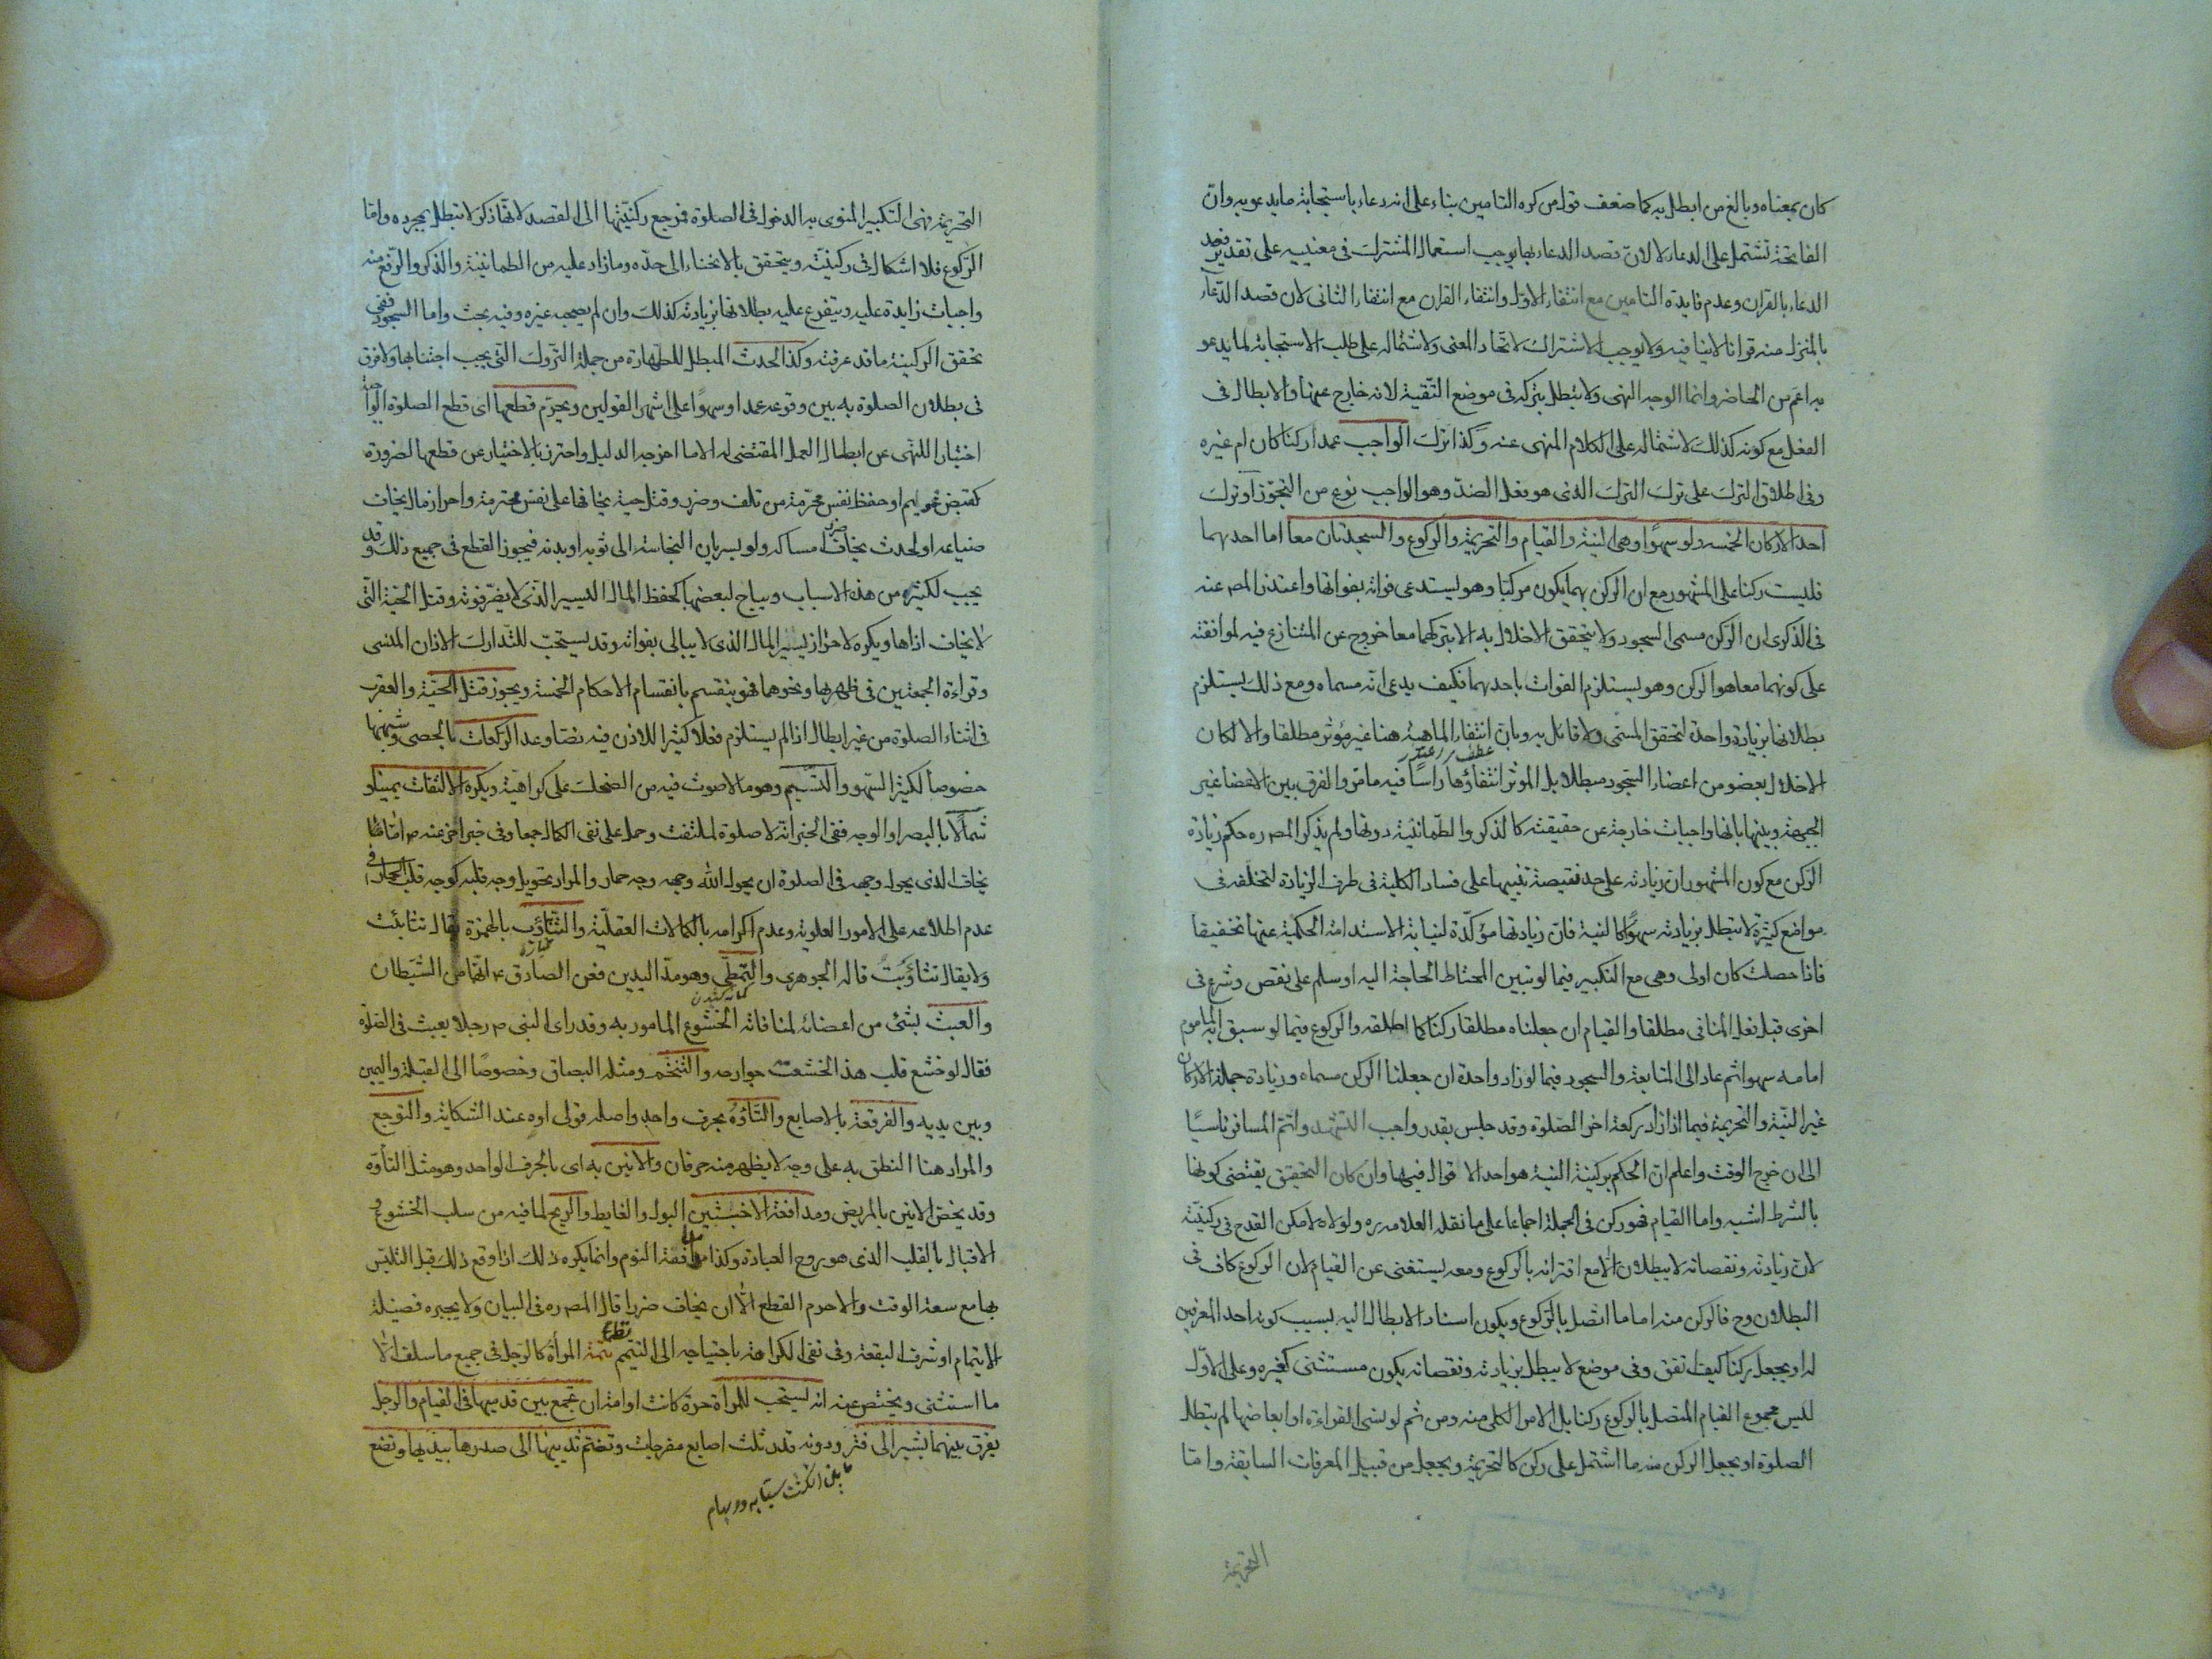 كان بمعناه وبالغ من ابطل به كما ضعف قول من كره التامين بناء على انه دعاء باستجابة ما يدعو به وان
الفاتحة تشتمل على الدعاء لا لان قصد الدعاء بها يوجب استعمال المشترك في معنييه على تقدير قصد
الدعاء بالقران وعدم فايدة التامين مع انتفاء الاول وانتفاء القران مع انتفاء الثانى لان قصد الدعاء
بالمنزل منه قرانا لا ينافيه ولا يوجب الاشتراك لاتحاد المعنى ولاشتماله على طلب الاستجابة لما يدعو
به اعم من الحاضر وانما الوجه النهى ولا تبطل بتركه في موضع التقية لانه خارج عنها والابطال في
الفعل مع كونه كذلك لاشتماله على الكلام المنهى عنه وكذا ترك الواجب عمدا ركنا كان ام غيره
وفى اطلاق الترك على ترك الترك الذى هو فعل الضد وهو الواجب نوع من التجوز او ترك
احد الاركان الخمسه ولو سهوا وهى النية والقيام والتحريمة والركوع والسجدتان معا اما احديهما
فليست ركنا على المشهور مع ان الركن بهما يكون مركبا وهو يستدعى فواته بفواتها واعتذر المص عنه
فى الذكرى ان الركن مسمى السجود ولا يتحقق الاخلال به الا بتركهما معا خروج عن المتنازع فيه لموافقته
على كونهما معا هو الركن وهو يستلزم الفوات باحديهما فكيف يدعى انه مسماه ومع ذلك يستلزم
بطلانها بزيادة واحدة لتحقق المسمى ولا قائل به وبان انتفاء الماهية هنا غير مؤثر مطلقا والا لكان
الاخلال بعضو من اعضاء السجود مبطلا بل الموثر انتفاؤها راسا فيه ما مر والفرق بين الاعضا غير
الجبهة وبينها بانها واجبات خارجة عن حقيقته كالذكر والطمانينة دونها ولم يذكر المص ره حكم زيادة
الركن مع كون المشهور ان زيادته على حد نقيصته تنبيها على فساد الكلية فى طرف الزيادة لتخلفه فى
مواضع كثيرة لا تبطل بزيادته سهوا كالنية فان زيادتها مؤكدة لنيابة الاستدامة الحكمية عنها تخفيفا
فاذا حصلت كان اولى وهى مع التكبير فيما لو تبين المحتاط الحاجة اليه او سلم على نقص وشرع فى
اخرى قبل فعل المنافى مطلقا والقيام ان جعلناه مطلقا ركنا كما اطلقه والركوع فيما لو سبق به الماموم
امامه سهوا ثم عاد الى المتابعة والسجود فيما لو زاد واحدة ان جعلنا الركن مسماه وزيادة جملة الاركان
غير النية والتحريمة فيما اذا زاد ركعة اخر الصلوة وقد جلس بقدر واجب التشهد واتم المسافر ناسيا
الى ان خرج الوقت واعلم ان الحكم بركنية النية هو احد الاقوال فيها وان كان التحقيق يقتضى كونها
بالشرط اشبه واما القيام فهو ركن فى الجملة اجماعا على ما نقله العلامه ره ولولاه لامكن القدح فى ركنيته
لان زيادته ونقصانه لا يبطلان الا مع اقترانه بالركوع ومعه يستغنى عن القيام لان الركوع كاف فى
البطلان وح فالركن منه اما ما اتصل بالركوع ويكون اسناد الابطال اليه بسبب كونه احد المعرفين
له او يجعل ركنا كيف اتفق وفى موضع لا تبطل بزيادته ونقصانه يكون مستثنى كغيره وعلى الاول
ليس مجموع القيام المتصل بالركوع ركنا بل الامر الكلى منه ومن ثم لو نسى القراءة او ابعاضها لم تبطل
الصلوة او يجعل الركن منه ما اشتمل على ركن كالتحريمة ويجعل من قبيل المعرفات السابقة واما
التحريمة
التحريمة فهى التكبير المنوى به الدخول فى الصلوة فمرجع ركنيتها الى القصد لانها ذكر لا تبطل بمجرده واما
الركوع فلا اشكال فى ركنيته ويتحقق بالانحناء الى حده وما زاد عليه من الطمانينة والذكر والرفع منه
واجبات زايدة عليه ويتفرع عليه بطلانها بزيادته كذلك وان لم يصحبه غيره وفيه بحث واما السجود ففى
تحقق الركنية ما قد عرفته وكذا الحدث المبطل للطهارة من جملة التروك التى يجب اجتنابها ولا فرق
فى بطلان الصلوة به بين وقوعه عمدا او سهوا على اشهر القولين ويحرم قطعها اى قطع الصلوة الواجبة
اختيارا للنهى عن ابطال العمل المقتضى له الا ما اخرجه الدليل واحترز بالاختيار عن قطعها لضرورة
كقبض غريم او حفظ نفس محترمة من تلف وضرر وقتل حية يخافها على نفس محترمة واحراز مال يخاف
ضياعه او لحدث يخاف ضرر امساكه ولو بسريان النجاسة الى ثوبه او بدنه فيجوز القطع فى جميع ذلك وقد
يجب لكثير من هذه الاسباب ويباح لبعضها كحفظ المال اليسير الذى لا يضر فوته وقتل الحية التى
لا يخاف اذاها ويكره لاحراز يسير المال الذى لا يبالى بفواته وقد يستحب للتدارك الاذان المنسى
وقراءة الجمعتين فى ظهريها ونحوهما فهو ينقسم بانقسام الاحكام الخمسة ويجوز قتل الحية والعقرب
فى اثناء الصلوة من غير ابطال اذا لم يستلزم فعلا كثيرا للاذن فيه نصا وعد الركعات بالحصى وشبهها
خصوصا لكثير السهو والتبسم وهو ما لا صوت فيه من الضحك على كراهية ويكره الالتفات يمينا و
شمالا بالبصر او الوجه ففى الخبر انه لا صلوة لملتفت وحمل على نفى الكمال جمعا وفى خبر اخر عنه ص اما
يخاف الذى يحول وجهه فى الصلوة ان يحول الله وجهه وجه حمار والمراد تحويل وجه قلبه كوجه قلب الحمار فى
عدم اطلاعه على الامور العلوية وعدم اكرامه بالكمالات العقلية والتثاؤب بالهمزة يقال تثاءبت
ولا يقال تثاوبت قاله الجوهرى والتمطى وهو مد اليدين فعن الصادق ع انهما من الشيطان
والعبث بشئ من اعضائه لمنافاته الخشوع المامور به وقد راى النبى ص رجلا يعبث فى الصلوة
فقال لو خشع قلب هذا لخشعت جوارحه والتنخم ومثله البصاق وخصوصا الى القبلة واليمين
وبين يديه والفرقعة بالاصابع والتاوه بحرف واحد واصله قول اوه عند الشكاية والتوجع
والمراد هنا النطق به على وجه لا يظهر منه حرفان والانين به اى بالحرف الواحد وهو مثل التاوه
وقد يخص الانين بالمريض ومدافعة الاخبثين البول والغايط والريح لما فيه من سلب الخشوع و
الاقبال بالقلب الذى هو روح العبادة وكذا مدافعة النوم وانما يكره ذلك اذا وقع ذلك قبل التلبس
بها مع سعة الوقت والا حرم القطع الا ان يخاف ضررا قال المص ره فى البيان ولا يجبره فضيلة
الايتمام او شرف البقعة وفى نفى الكراهة باحتياجه الى التيمم نظر تتمة المراة كالرجل فى جميع ما سلف الا
ما استثنى ويختص عنه انه يستحب للمراة حرة كانت او امة ان تجمع بين قدميها فى القيام والرجل
يفرق بينهما بشبر الى فتر ودونه قدر ثلث اصابع مفرجات وتضم ثدييها الى صدرها بيديها وتضع